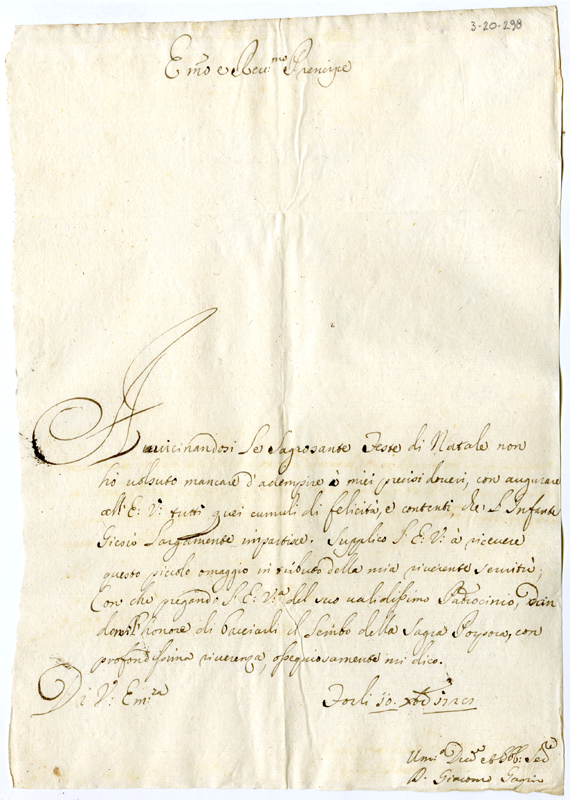 3-20-298
Em̃o e Reu:mo Prencipe
Auuicinandosi Le Sagrosante Feste di Natale non
hò uolsuto mancare d'adempire à miei precisi doueri, con augurare
all' E: V: tutti quei cumuli di felicità, e contenti, che L'Infante
Giesù Largamente impartisce. Supplico L' E: V: à riceuere
questo piccolo omaggio in tributo della mia riuerente seruitù;
Con che pregando L' E: V:a del suo ualidissimo Padrocinio,
l'honore di bacciarli il Lembo della Sagra Porpora, con
profondissima riuerenza, ossequiosamente mi dico.
Di V: Em:za
Forlì 10. Xbre
Um:o Deu:o et Obb: Ser:e
D. Giacomo